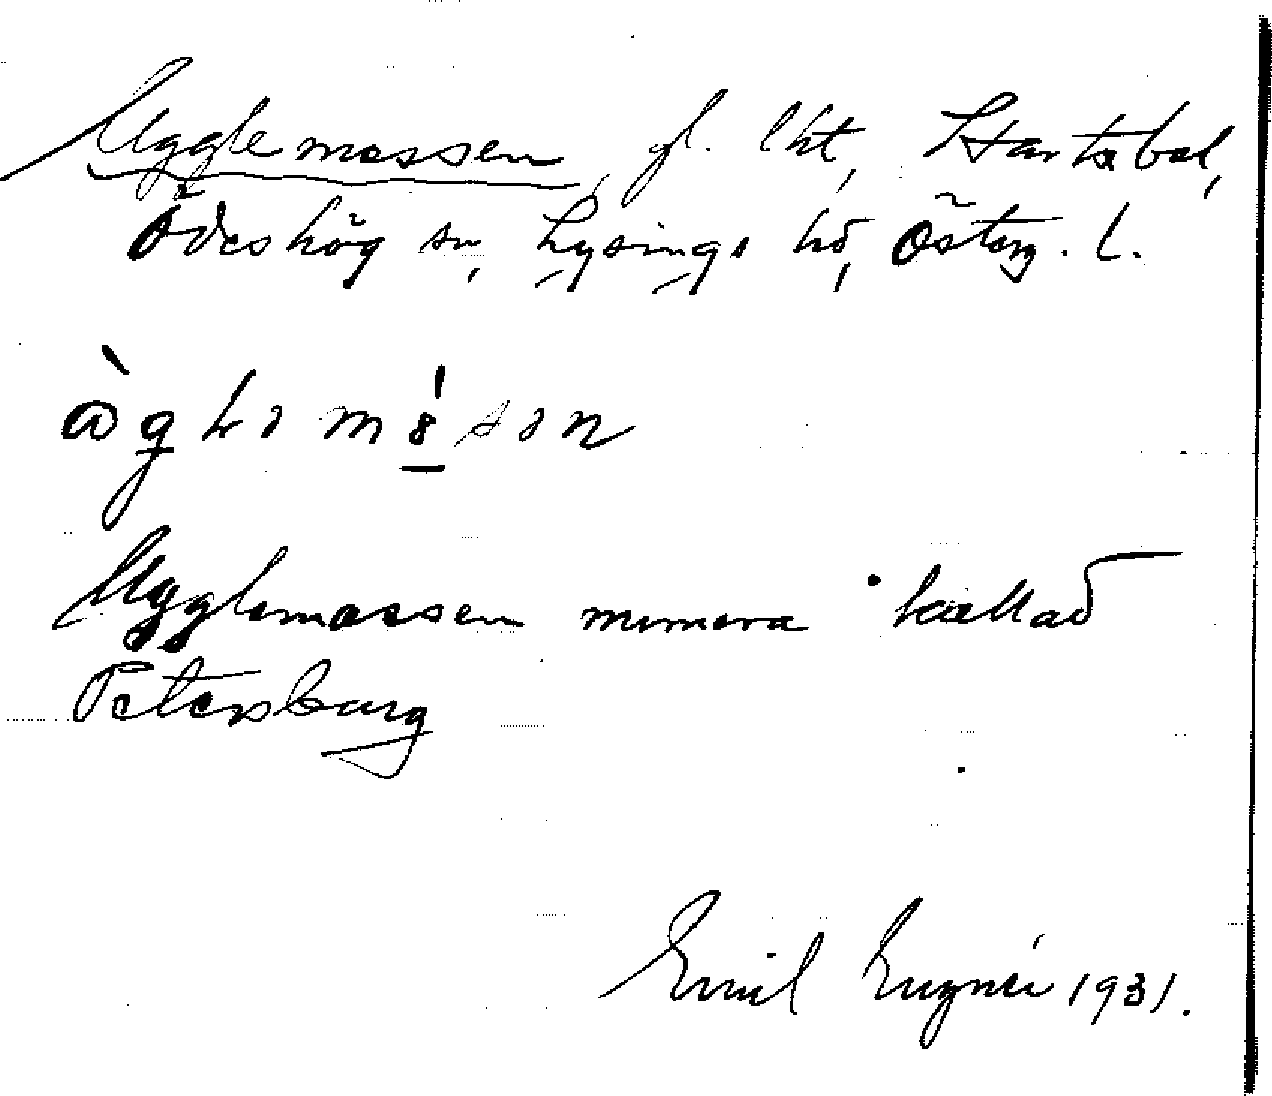 Ugglemossen, gl. lht, Stav...bol,
Ödeshög sn, Lysings hd, Österg. l.
ògləmósən
Ugglemossen numera kallad
Petersburg
Emil 1931.